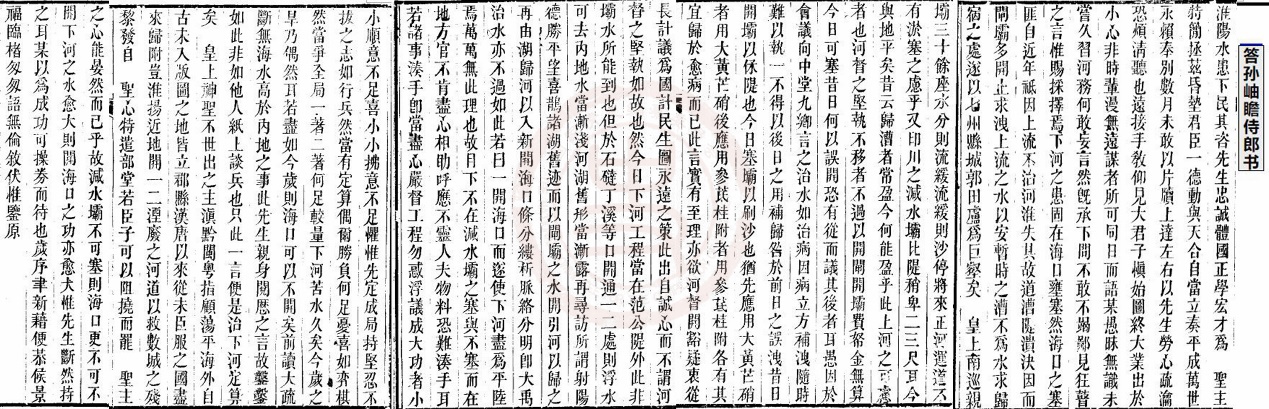 答孙岫瞻侍郎书
淮陽水患下民其咨先生忠誠體國正學宏才爲　聖主
特簡拯茲昏墊君臣一德動與天合自當立奏平成萬世
永賴奉別數月未敢以片牘上達左右以先生勞心疏瀹
恐煩清聽也遠接手敎仰見大君子愼始圖終大業出於
小心非時輩漫無遠謀者所可同日而語某愚昧無識未
嘗久習河務何敢妄言然旣承下問不敢不竭鄙見狂瞽
之言惟賜採擇焉下河之患固在海口壅塞然海口之塞
匪自近年祗因上流不治河淮失其故道漕隄潰決因而
開壩多開上求洩上流之水以安暫時之漕不爲水求歸
宿之處遂以七州縣城郭田廬爲巨壑矣　皇上南巡親
壩三十餘座水分則流緩流緩則沙停將來正河運道不
有淤塞之慮乎又印川之減水壩比隄稍卑二三尺耳今
與地平矣昔云歸漕者常盈今何能盈乎此上河之可慮
者也河督之堅執不移者不過以開閘開壩費帑金無算
今日可塞昔日何以誤開恐有從而議其後者耳愚因於
會議向中堂九卿言之治水如治病因病立方補洩隨時
難以執一不得以後日之用補歸咎於前日之誤洩昔日
開壩以保隄也今日塞壩以刷沙也猶先應用大黃芒硝
者用大黃芒硝後應用參芪桂附者用參芪桂附各有其
宜歸於愈病而已此言實有至理亦欲河督開豁疑衷從
長計議爲國計民生圖永遠之策此出自誠心而不謂河
督之堅執如故也然今日下河工程當在范公隄外此非
壩水所能到也但於石䃮丁溪等口開通一二處則浮水
可去內地水當漸淺河湖舊形當漸露再尋訪所謂射陽
德勝平望喜鵲諸湖舊迹而以開壩之水開引河以歸之
再由湖歸河以入新開海口條分縷析脈絡分明卽大禹
治水亦不過如此若曰一開海口而遂使下河盡爲平陸
焉萬萬無此理也故目下不在減水壩之塞與不塞而在
地方官不肯盡心相助呼應不靈人夫物料恐難湊手耳
若諸事湊手卽當盡心嚴督工程勿惑浮議成大功者小
小順意不足喜小小拂意不足懼惟先定成局持堅忍不
拔之志如行兵然當有定算偶爾勝負何足憂喜如弈棋
然當爭全局一著二著何足較量下河苦水久矣今歲之
旱乃偶然耳若盡如今歲則海口可以不開矣前讀大疏
斷無海水高於內地之事此先生親身閱歷之言故鑿鑿
如此非如他人紙上談兵也只此一言便是治下河定算
矣　皇上神聖不世出之主滇黔閩粤指顧蕩平海外自
古未入版圖之地皆立郡縣漢唐以來從未臣服之國盡
來歸附豈淮揚近地開一二湮廢之河道以救數城之殘
黎發自　聖心特遣部堂若臣子可以阻撓而罷　聖主
之心能晏然而已乎故減水壩不可塞則海口更不可不
開下河之水愈大則開海口之功亦愈大惟先生斷然持
之耳某以爲成功可操劵而待也歲序聿新藉便恭候景
福臨楮匆匆語無倫敘伏惟鑒原